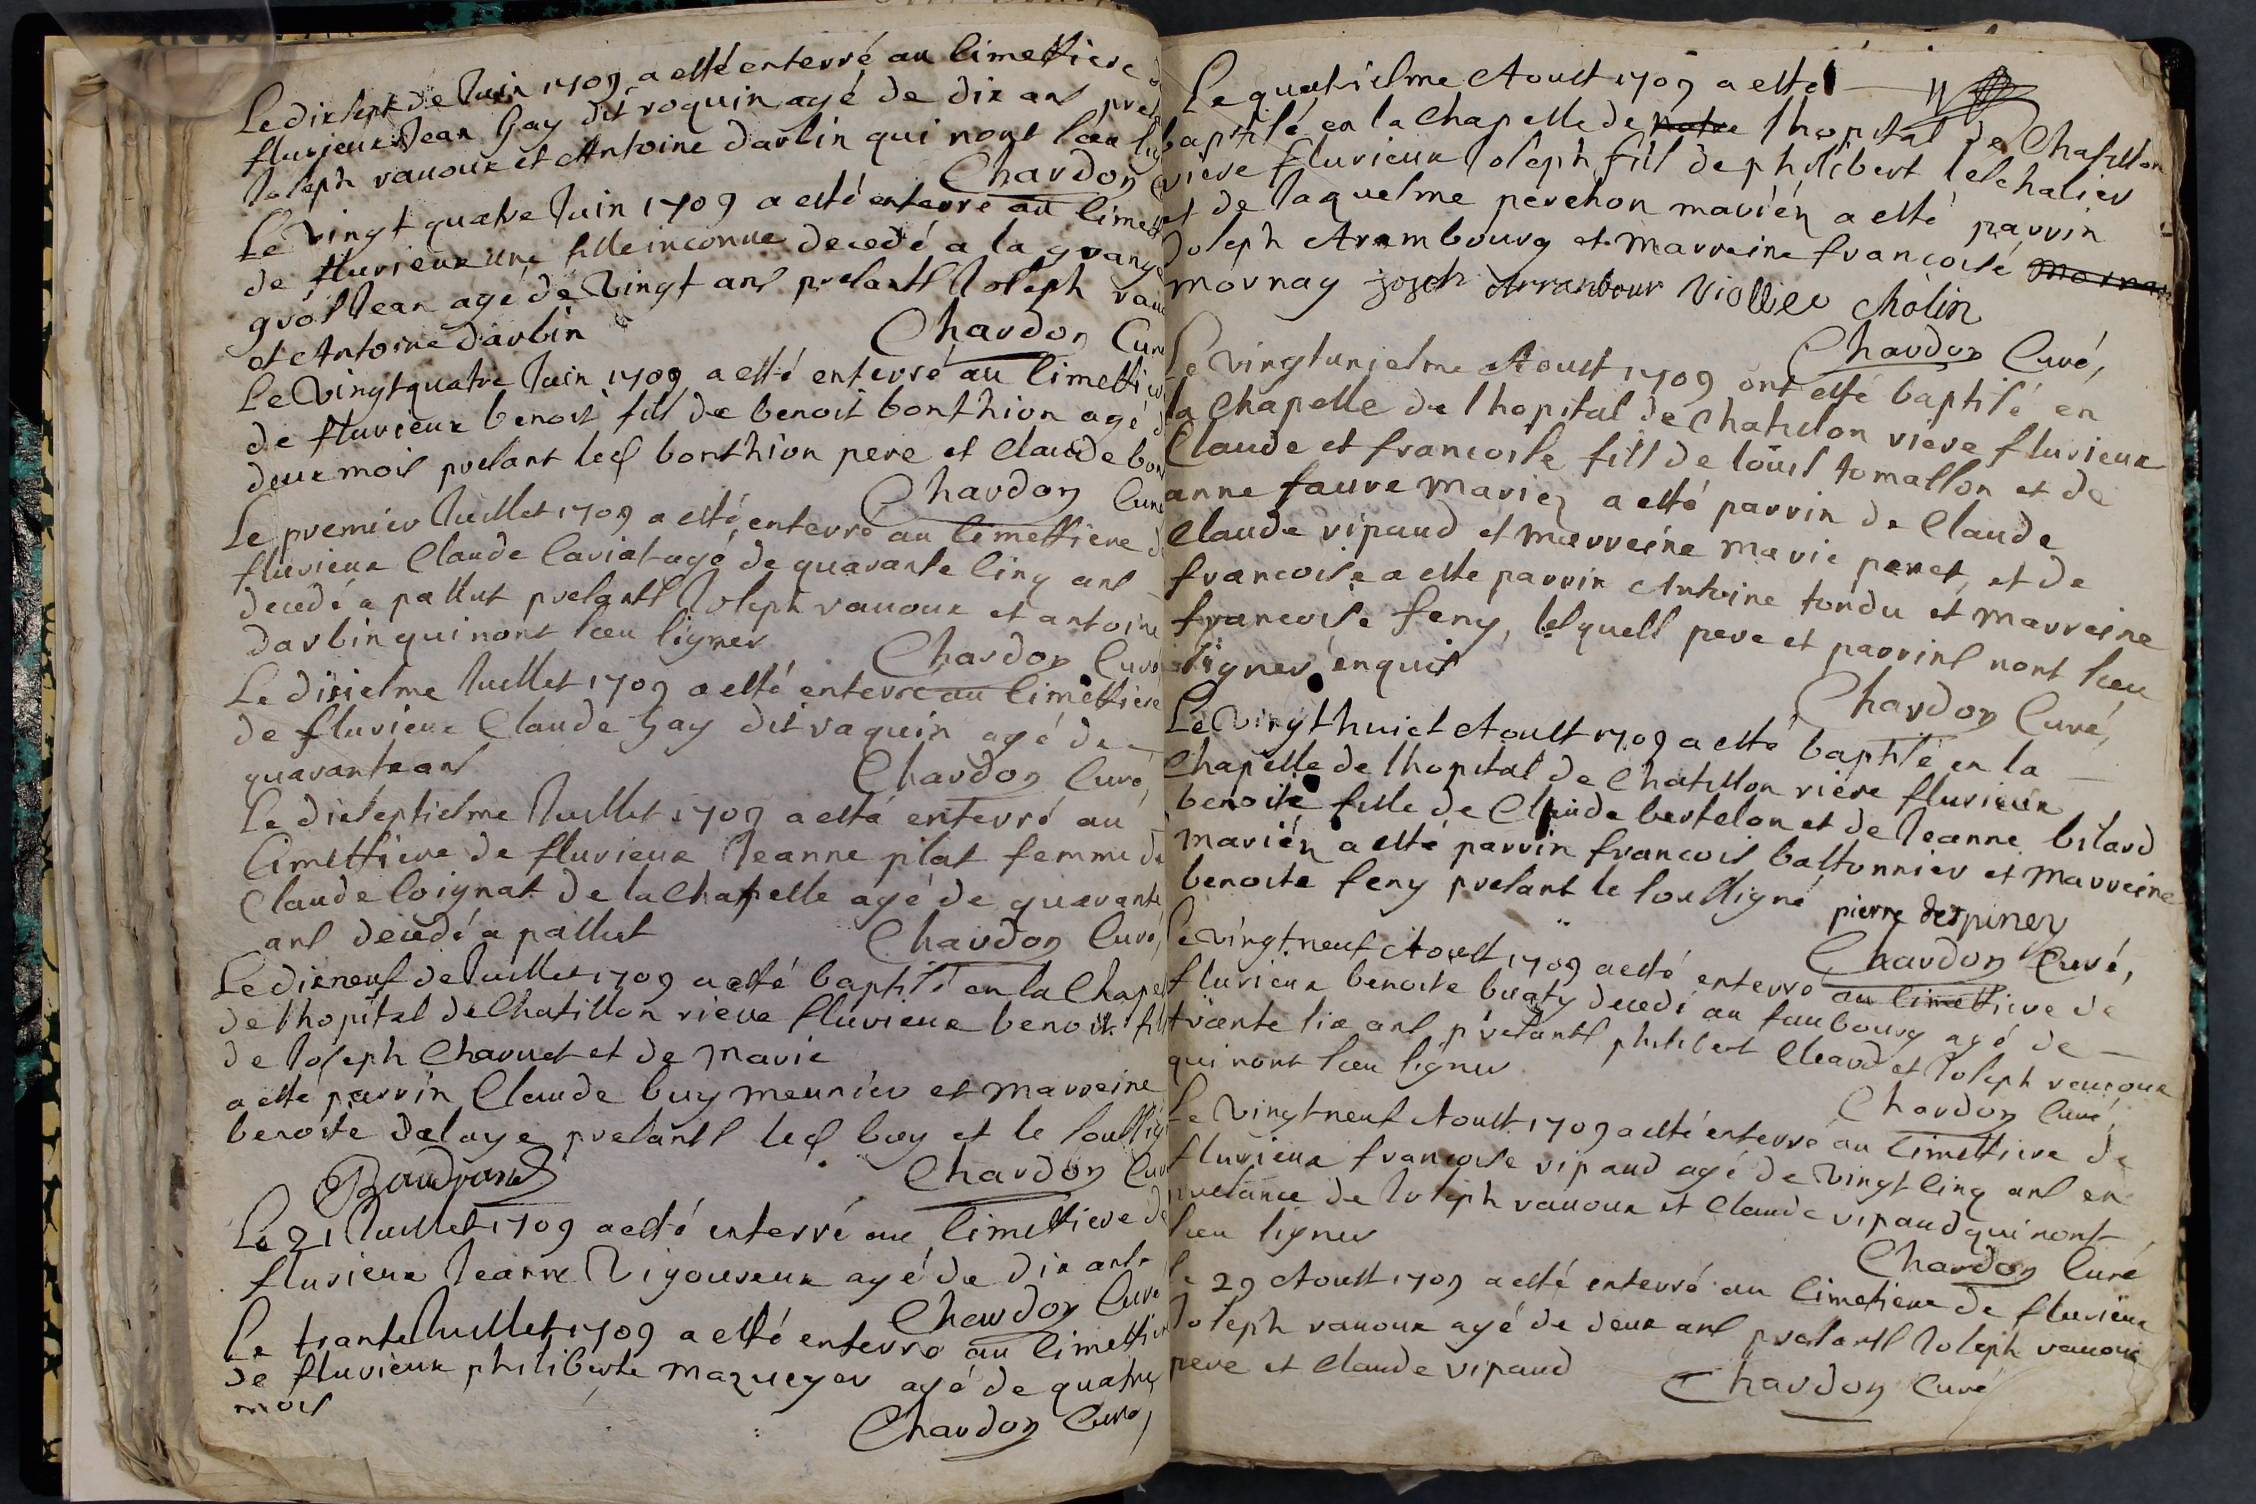 Le dixsept de Juin 1709 a esté enterré au Cimettiere
flurieux Jean Gay dit roquin agé de dix ans
Joseph rauoux et Antoine darbin qui nont sceu
Chardon
Le Vingt quatre Juin 1709 a esté enterré au
de flurieux une fille inconue decedé a la grange
gros Jean agé de Vingt ans presants Joseph
et Antoine darbin Chardon Curé
Le Vingtquatre Juin 1709 a esté enterré au
de flurieux benoist fils de benoit bonthion agé
deux mois presant led bonthion pere et Claude
Chardon Curé
Le premier Juillet 1709 a esté enterré au Cimettiere
flurieux Claude Caviat agé de quarante cinq ans
decedé a palluet presants Joseph rauoux et antoine
darbin qui nont sceu signer Chardon Curé
Le dixiesme Juillet 1709 a esté enterré au Cimettiere
de flurieux Claude Gay dit vaquin agé de
quarante ans Chardon Curé,
Le dixseptiesme Juillet 1709 a esté enterré au
Cimettiere de flurieux Jeanne plat femme de
Claude Coignat de la Chapelle agé de quarante
ans decedé a palluet Chardon Curé,
Le dixneuf de Juillet 1709 a esté baptisé en la
de lhopital de Chatillon riere flurieux benoist
de Joseph Charuet et de Marie
a esté parrin Claude buy meunier et Marreine
benoite delaye presants led buy et le
Baudrand Chardon Curé
Le 21 Juillet 1709 a esté enterré au Cimettiere de
flurieux Jeanne Vigoureux agé de dix ans
Chardon Curé
Le trante Juillet 1709 a esté enterré au
de flurieux philiberte mazueyer agé de quatre
mois
Chardon Curé,
Le quatriesme Aoust 1709 a esté
baptisé en la Chapelle de notre lhopital de Chatillon
riere flurieux Joseph fils de philibert leschalier
et de Jaquesme perchon mariéz a esté parrin
Joseph Arambourg et Marreine francoise Mornay
mornay Josph Arranbour Viollier Cholin
Chardon Curé,
Le Vingtuniesme Aoust 1709 ont esté baptisé en
la Chapelle de lhopital de Chatillon riere flurieux
Claude et francoise fils de loüis tomallon et de
anne faure Mariez a esté parrin de Claude
Claude ripaud et marreine Marie peret, et de
francoise a esté parrin Antoine tondu et Marreine
francoise feny, lesquells pere et parrins nont sceu
signer enquis
Chardon Curé,
Le Vingthuict Aoust 1709 a esté baptisé en la
Chapelle de lhopital de Chatillon riere flurieux
benoite fille de Claude bertelon et de Jeanne bilard
mariéz a esté parrin francois bastonnier et Marreine
benoite feny presant le soussigné pierre despiney
Chardon Curé,
Le vingtneuf Aoust 1709 a esté enterré au Cimettiere de
flurieux benoite buaty decedé au faubourg agé de
trante six ans, presants philibert Cleard et Joseph rauoux
qui nont sceu signer
Chardon Curé,
Le Vingtneuf Aoust 1709 a esté enterré au Cimettiere de
flurieux francoise ripaud agé de Vingt cinq ans en
presance de Joseph rauoux et Claude ripaud qui nont
sceu signer
Chardon Curé
le 29 Aoust 1709 a esté enterré au Cimetiere de fluriëux
Joseph rauoux agé de deux ans presants Joseph rauoux
pere et Claude ripaud
Chardon Curé